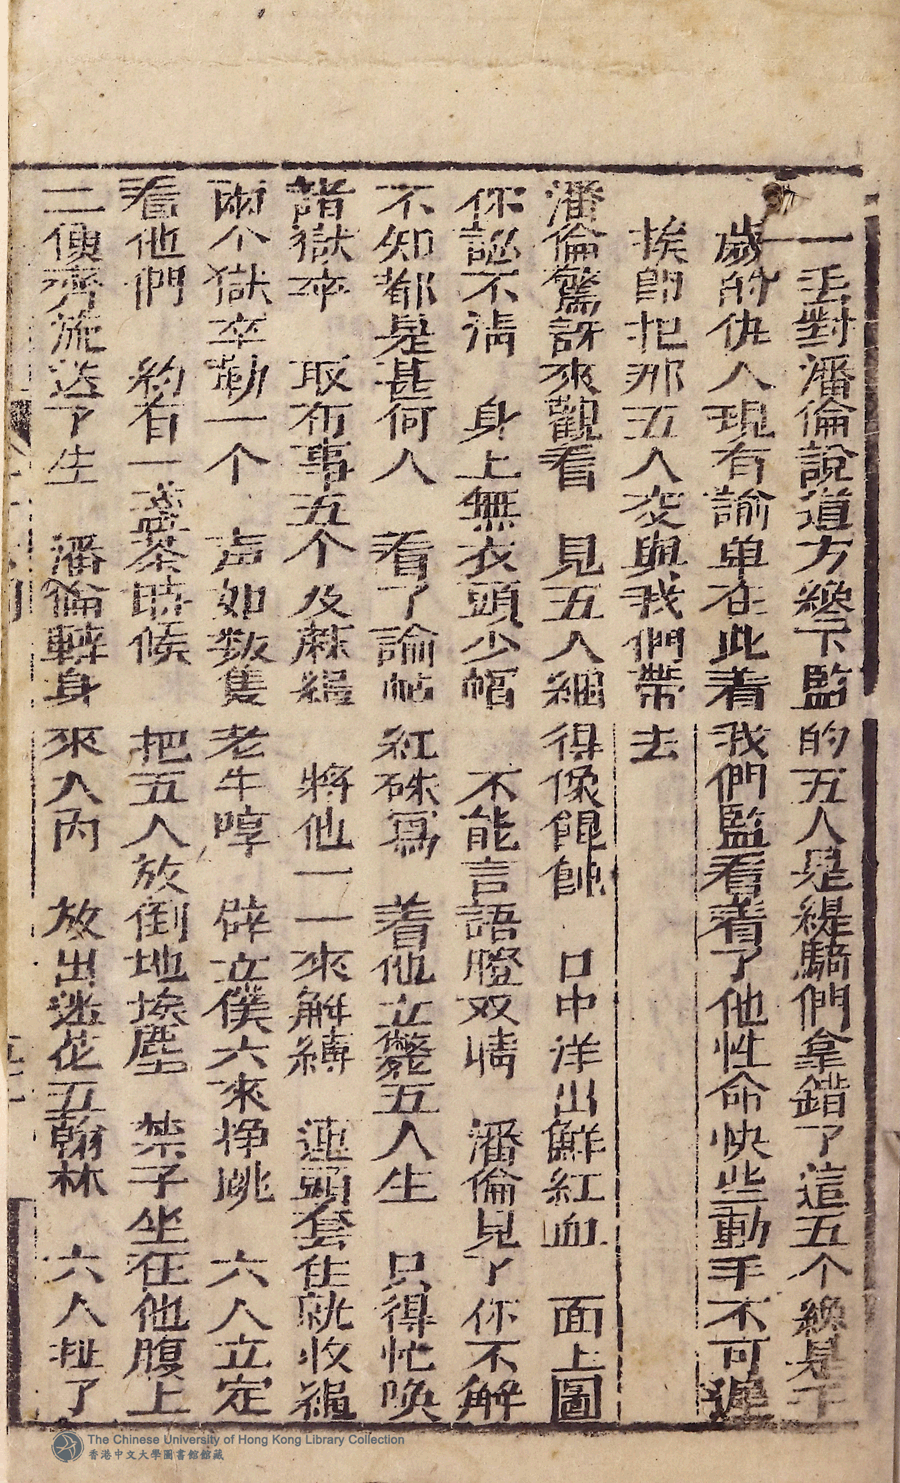 一手對潘倫說道方纔下監的五人是緹騎們拿錯了這五个纔是千
歲的仇人現有諭单在此着我們監看着了他性命快些動手不可遲
挨即把那五人交與我們帶去
潘倫驚訝來觀看　見五人綑得像餛飩　口中洋出鮮紅血　面上圖
你認不淸　身上無衣頭少帽　不能言語瞪双睛　潘倫見了你不解
不知都是甚何人　看了諭帖紅硃寫　着他立斃五人生　只得忙喚
諸獄卒　取布事五个及蔴繩　將他一一來解縳　蓮頭套住就收繩
兩个獄卒勒一个　声如数隻老牛哼　辟立僕六來挣跳　六人立定
看他們　約有一盞茶時候　把五人放倒地埃塵　禁子坐在他腹上
二便齊流送了生　潘倫轉身來入內　放出迷花五翰林　六人扯了
The Chinese University of Hong Kong Library Collection
香港中文大學圖書館館藏